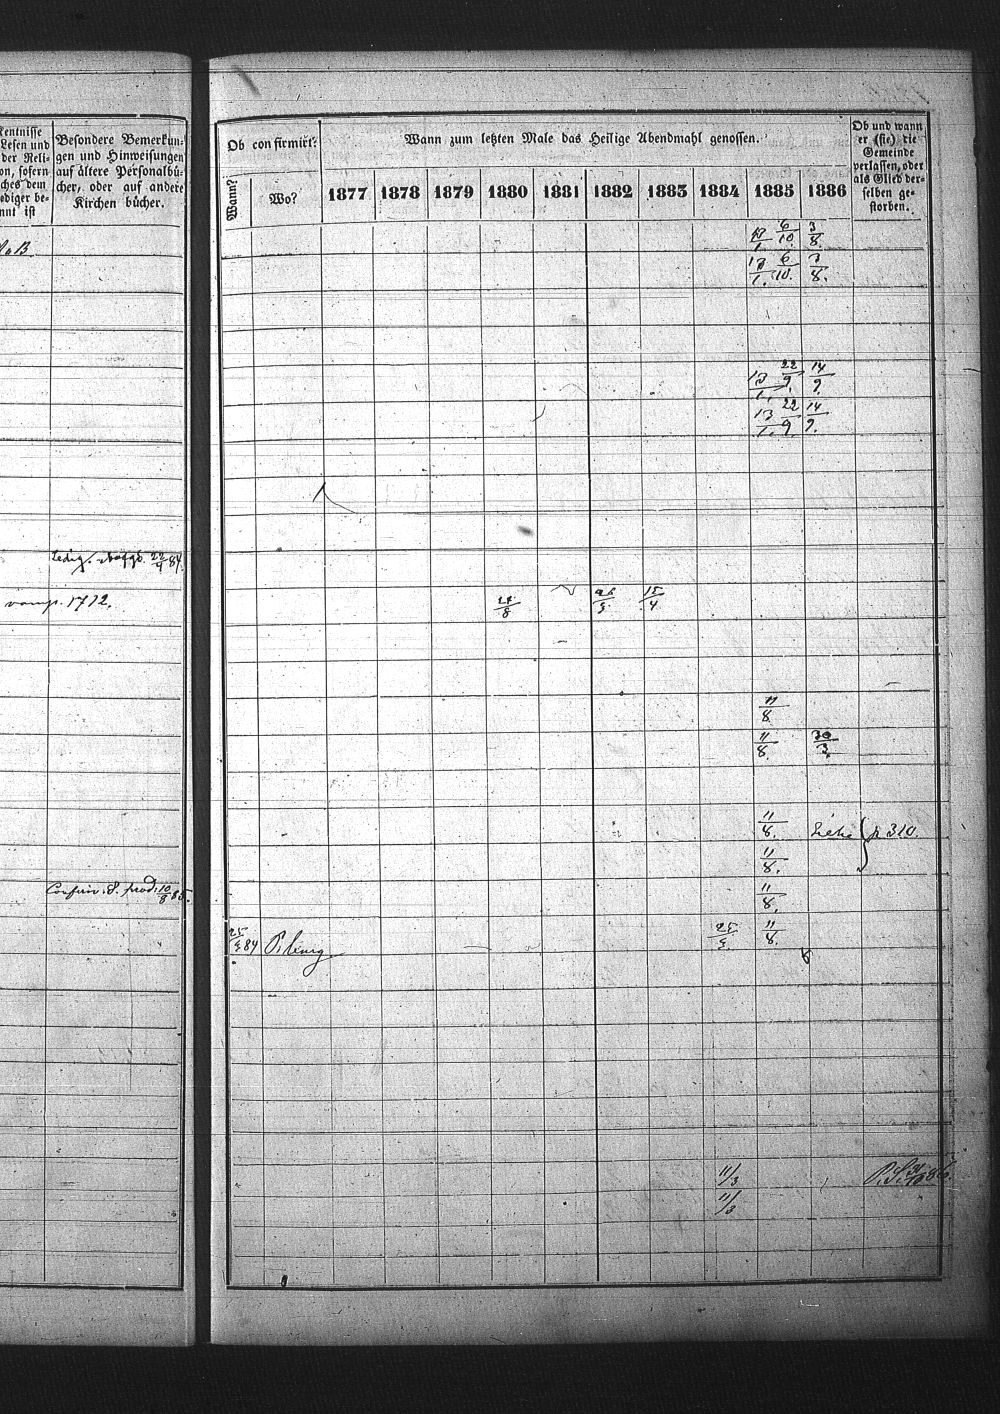 kentnisse
Lesen und
der Reli-
on, sofern
ches dem
ediger be-
nnt ist
Besondere Bemerkun-
gen und Hinweisungen
auf ältere Personalbü-
cher, oder auf andere
Kirchen bücher.
Ob confirmirt?
Wann?
Wo?
Wann zum letzten Male das Heilige Abendmahl genossen.
1877 1878 1879 1880 1881 1882 1883 1884 1885 1886
Ob und wann
er (sie) die
Gemeinde
verlassen, oder
als Glied der-
selben ge-
storben.
13/1. 6/10. 3/8.
13/1. 6/10. 3/8.
13/1. 22/9. 14/9.
13/1. 22/9. 14/9.
Ledig. 22/4 84.
1712. 15/4
11/8
11/8. 30/3.
11/8. p 310.
11/8.
10/8 85. 11/8.
25/3 84 25/3. 11/8.
11/3
11/3